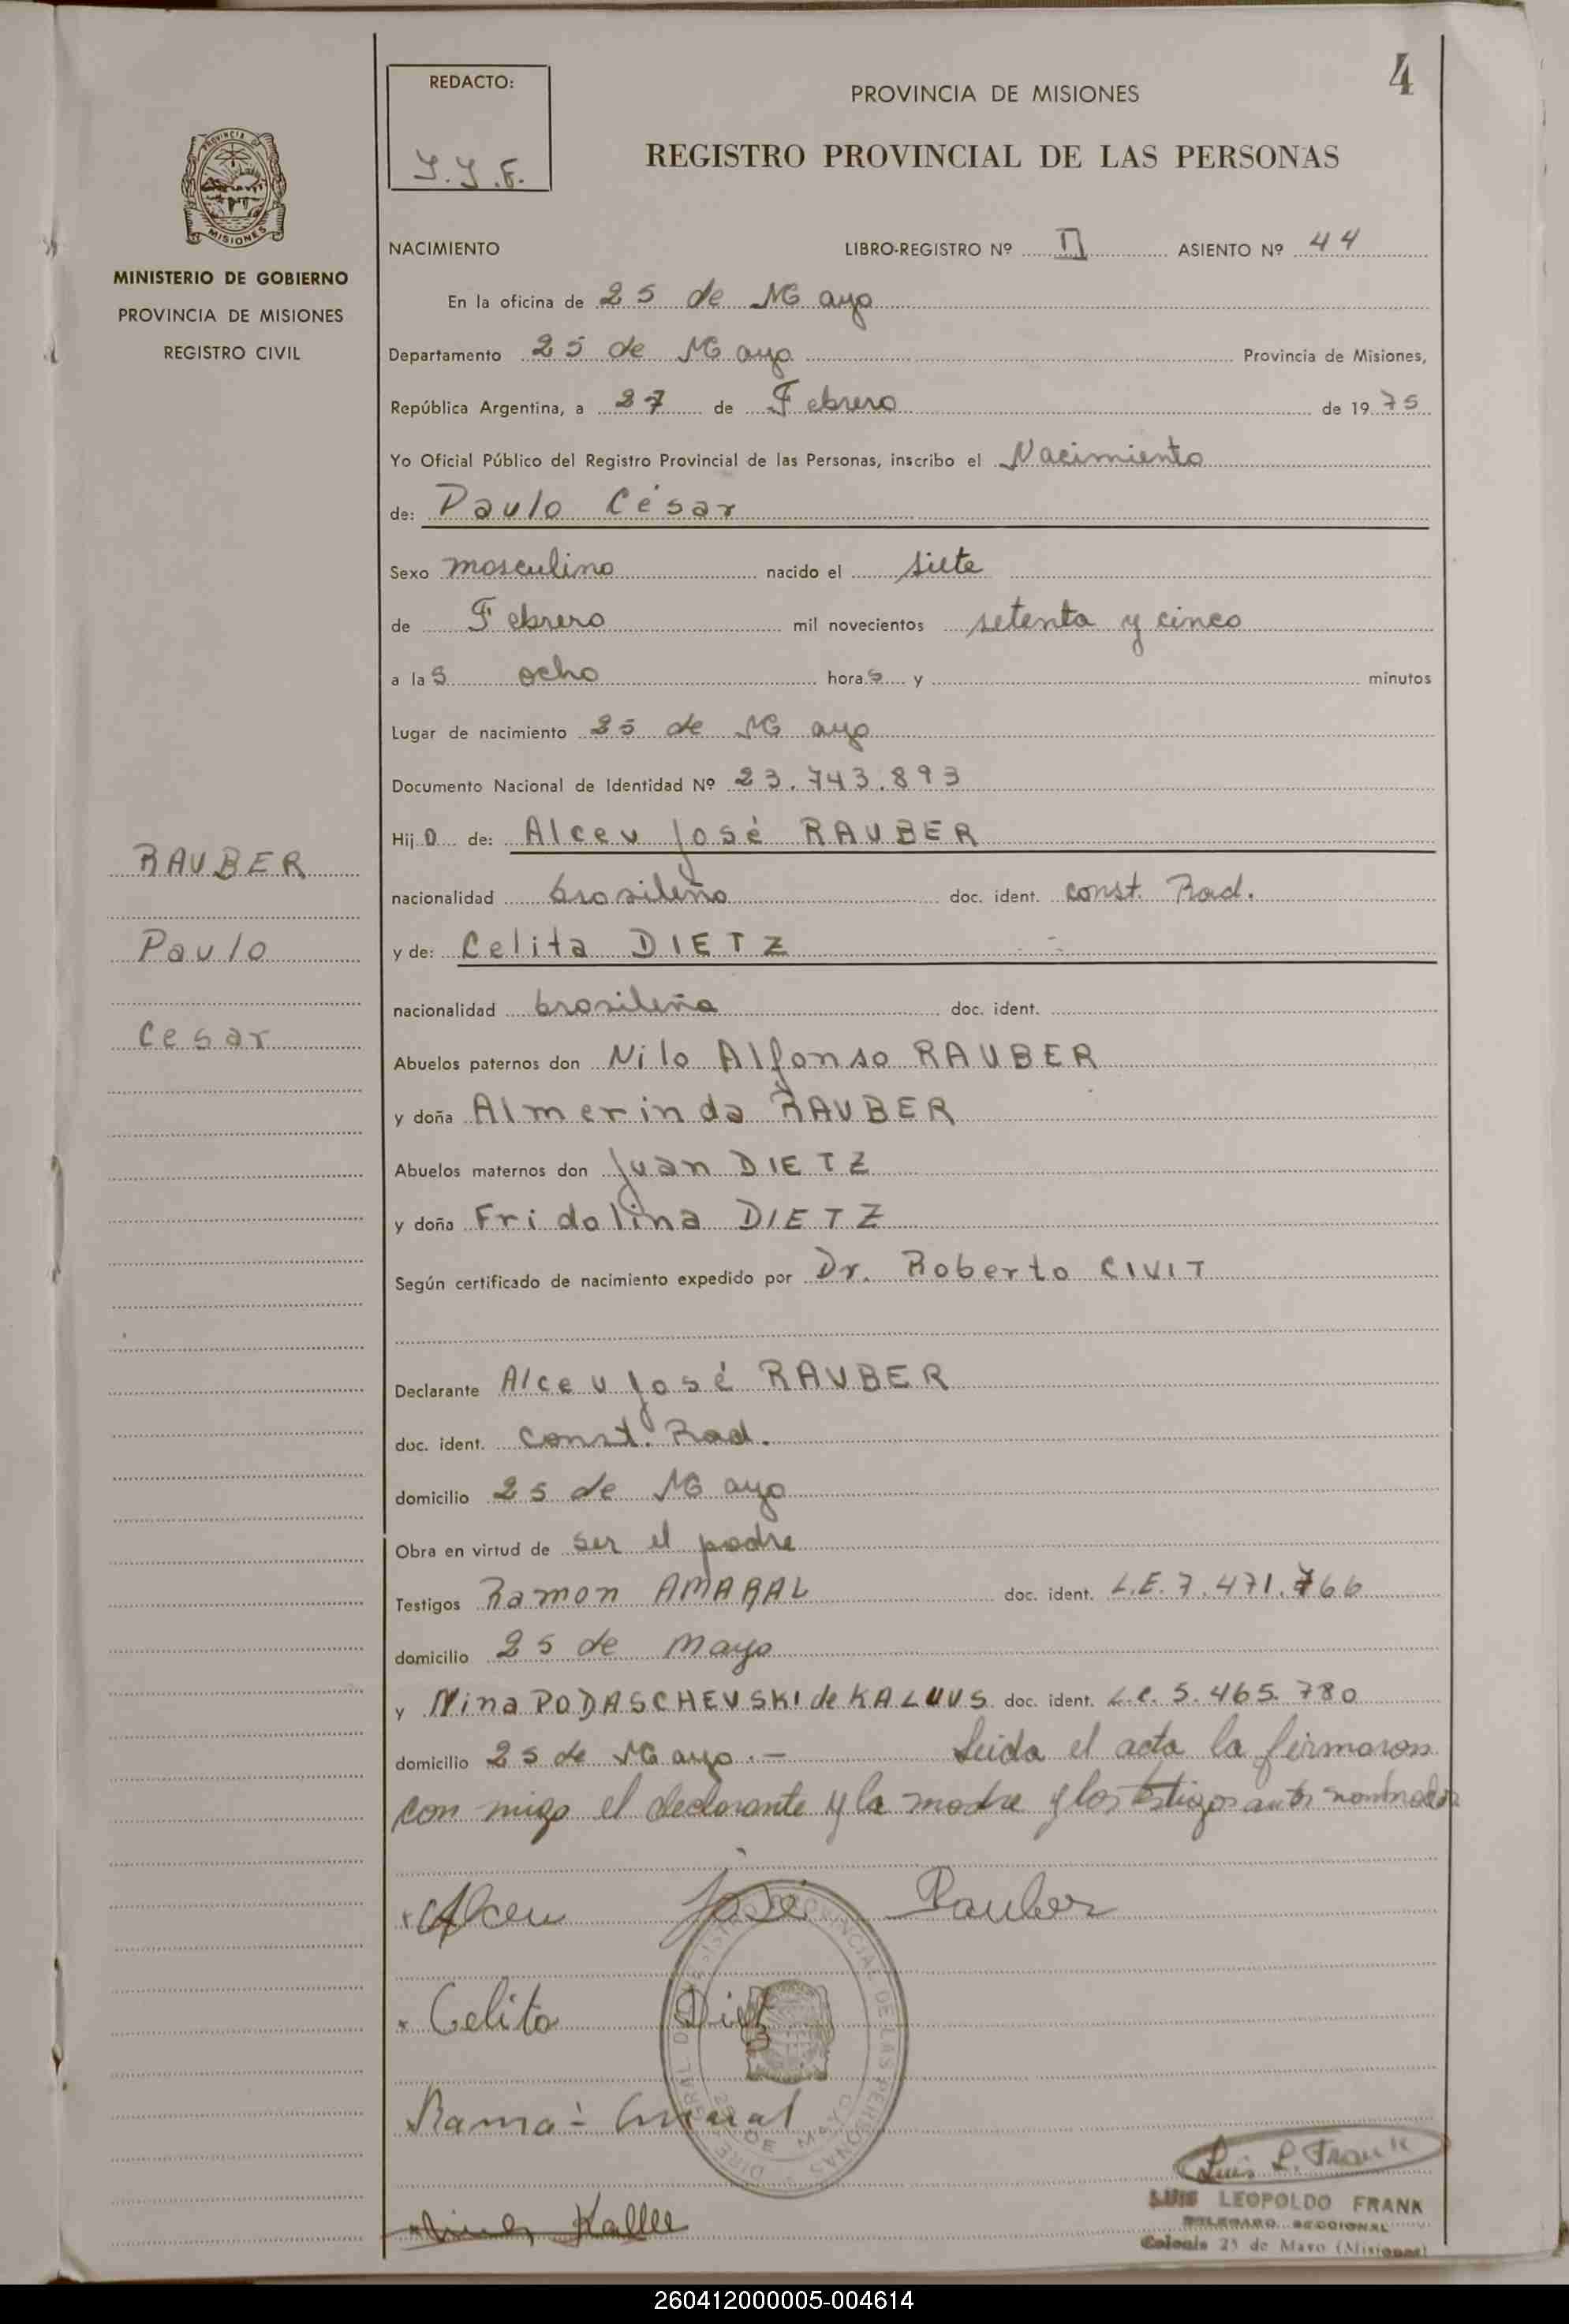 4
REDACTO:
PROVINCIA DE MISIONES
J.J.F.
REGISTRO PROVINCIAL DE LAS PERSONAS
PROVINCIA DE
MISIONES
MINISTERIO DE GOBIERNO
PROVINCIA DE MISIONES
REGISTRO CIVIL
NACIMIENTO LIBRO-REGISTRO Nº II ASIENTO Nº 44
En la oficina de 25 de Mayo
Departamento 25 de Mayo Provincia de Misiones,
República Argentina, a 27 de Febrero de 1975
Yo Oficial Público del Registro Provincial de las Personas, inscribo el Nacimiento
de: Paulo César
Sexo masculino nacido el siete
de Febrero mil novecientos setenta y cinco
a las ocho horas y minutos
Lugar de nacimiento 25 de Mayo
Documento Nacional de Identidad Nº 23.743.893
Hijo de: Alceu José RAUBER
RAUBER
nacionalidad brasileño doc. ident. const. Rad.
Paulo
y de: Celita DIETZ
nacionalidad brasileña doc. ident.
Cesar
Abuelos paternos don Nilo Alfonso RAUBER
y doña Almerinda RAUBER
Abuelos maternos don Juan DIETZ
y doña Fridolina DIETZ
Según certificado de nacimiento expedido por Dr. Roberto CIVIT
Declarante Alceu José RAUBER
doc. ident. Const. Rad.
domicilio 25 de Mayo
Obra en virtud de ser el padre
Testigos Ramon AMARAL doc. ident. L.E. 7.471.766
domicilio 25 de Mayo
y Nina PODASCHEVSKI de KALUUS doc. ident. L.C. 5.465.780
domicilio 25 de Mayo.- Leida el acta la firmaron
con migo el declarante y la madre y los testigos antes nombrados
Alceu José Rauber
Celita Dietz
Ramon Amaral
Luis L. Frank
LUIS LEOPOLDO FRANK
DELEGADO SECCIONAL
Colonia 25 de Mayo (Misiones)
260412000005-004614